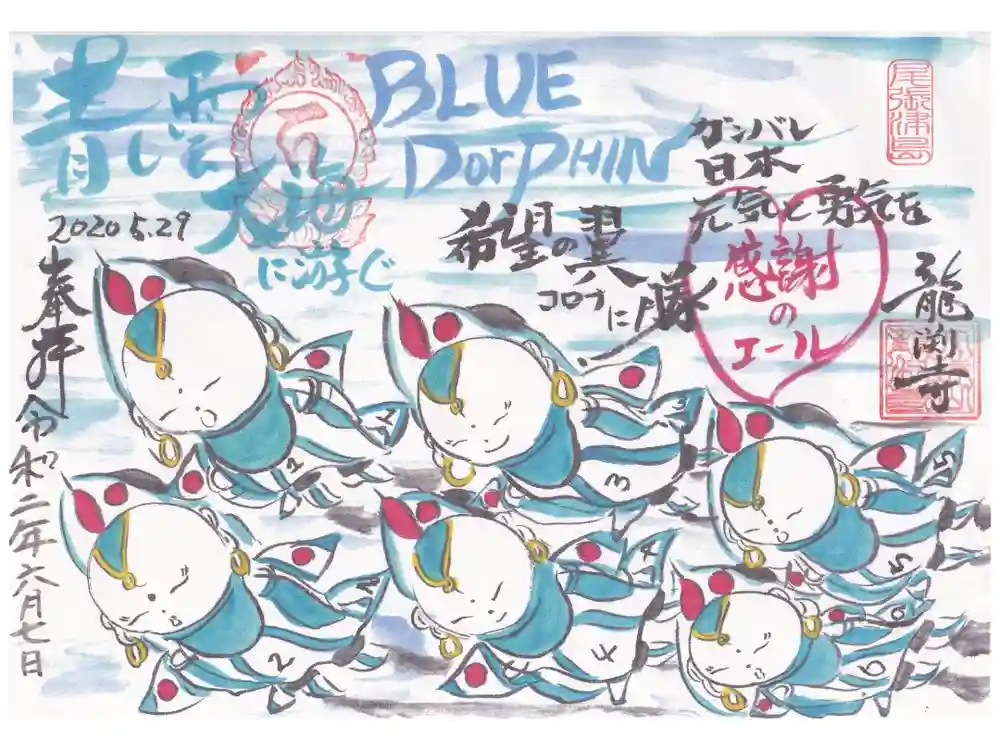 青い雲と
大海
に遊ぶ
BLUE
DorPHIN
ガンバレ
日本
元気と勇気を
感謝
の
エール
希望の翼
コロナ
に勝
2020 5.29
奉拝
令和二年六月七日
龍渕寺
1
1
3
3
5
5
2
4
4
6
6